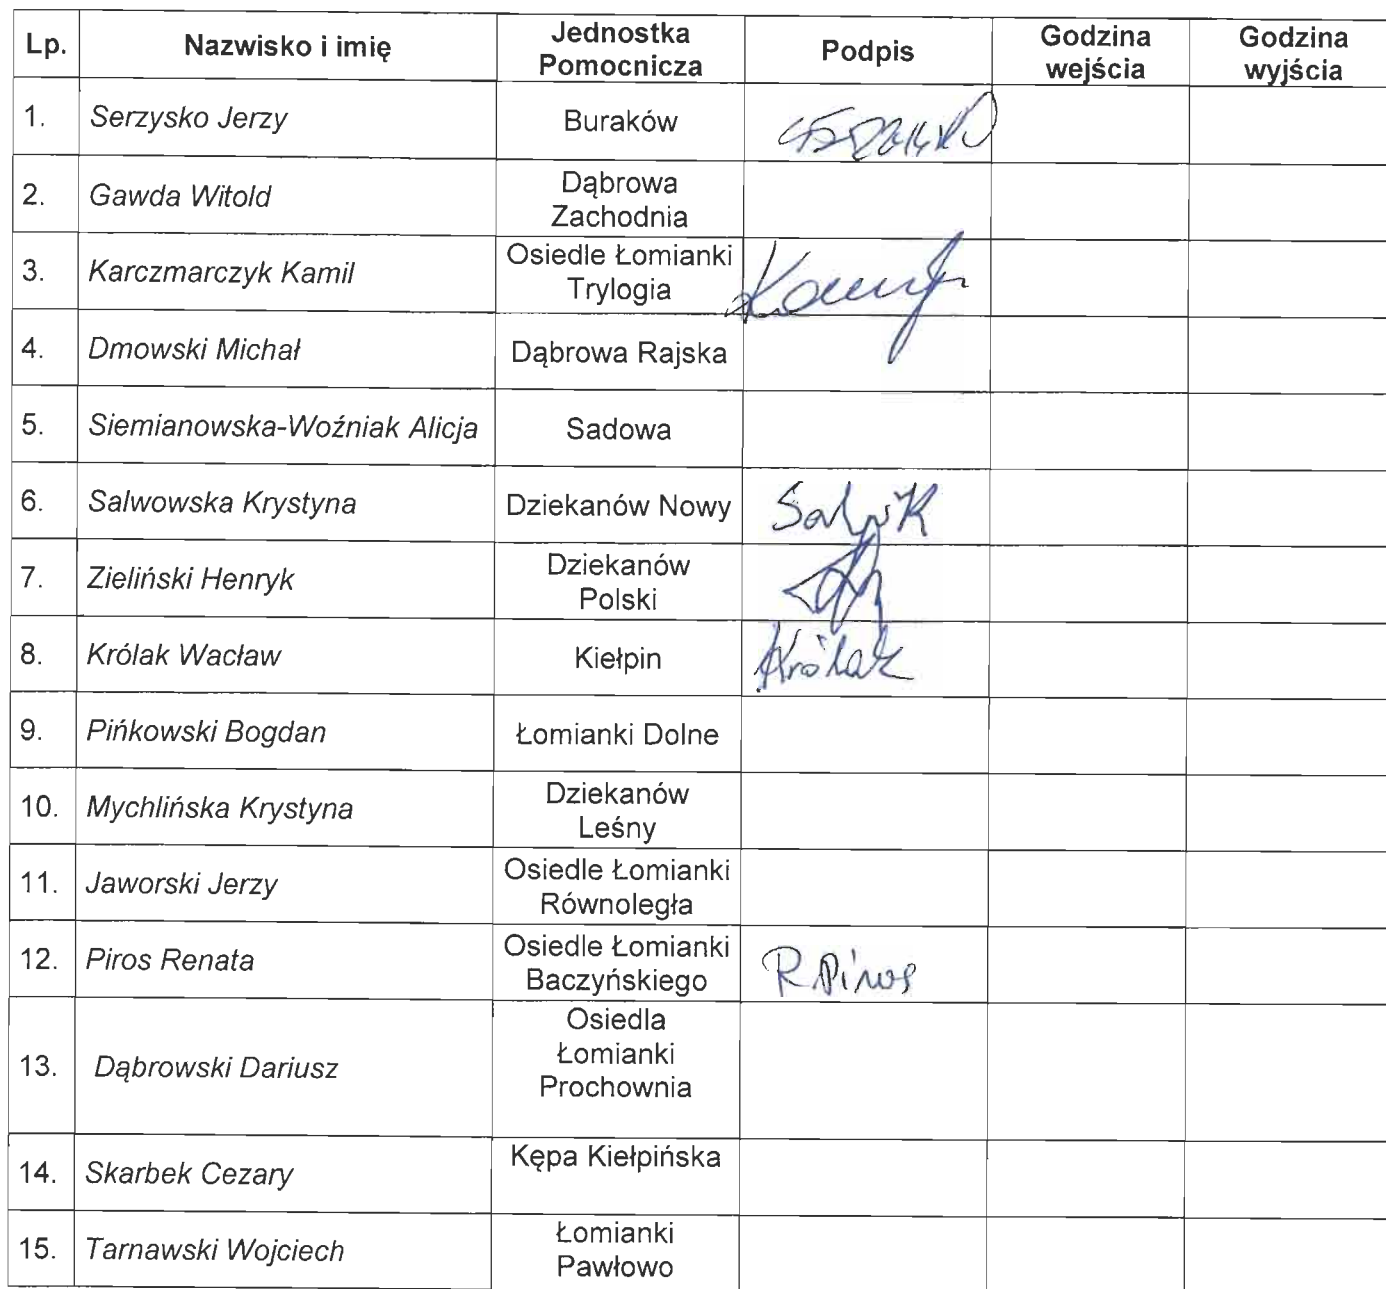 Lp. Nazwisko i imię Jednostka Pomocnicza Podpis Godzina wejścia Godzina wyjścia
1. Serzysko Jerzy Buraków
2. Gawda Witold Dąbrowa Zachodnia
3. Karczmarczyk Kamil Osiedle Łomianki Trylogia
4. Dmowski Michał Dąbrowa Rajska
5. Siemianowska-Woźniak Alicja Sadowa
6. Salwowska Krystyna Dziekanów Nowy
7. Zieliński Henryk Dziekanów Polski
8. Królak Wacław Kiełpin Królak
9. Pińkowski Bogdan Łomianki Dolne
10. Mychlińska Krystyna Dziekanów Leśny
11. Jaworski Jerzy Osiedle Łomianki Równoległa
12. Piros Renata Osiedle Łomianki Baczyńskiego R Piros
13. Dąbrowski Dariusz Osiedla Łomianki Prochownia
14. Skarbek Cezary Kępa Kiełpińska
15. Tarnawski Wojciech Łomianki Pawłowo